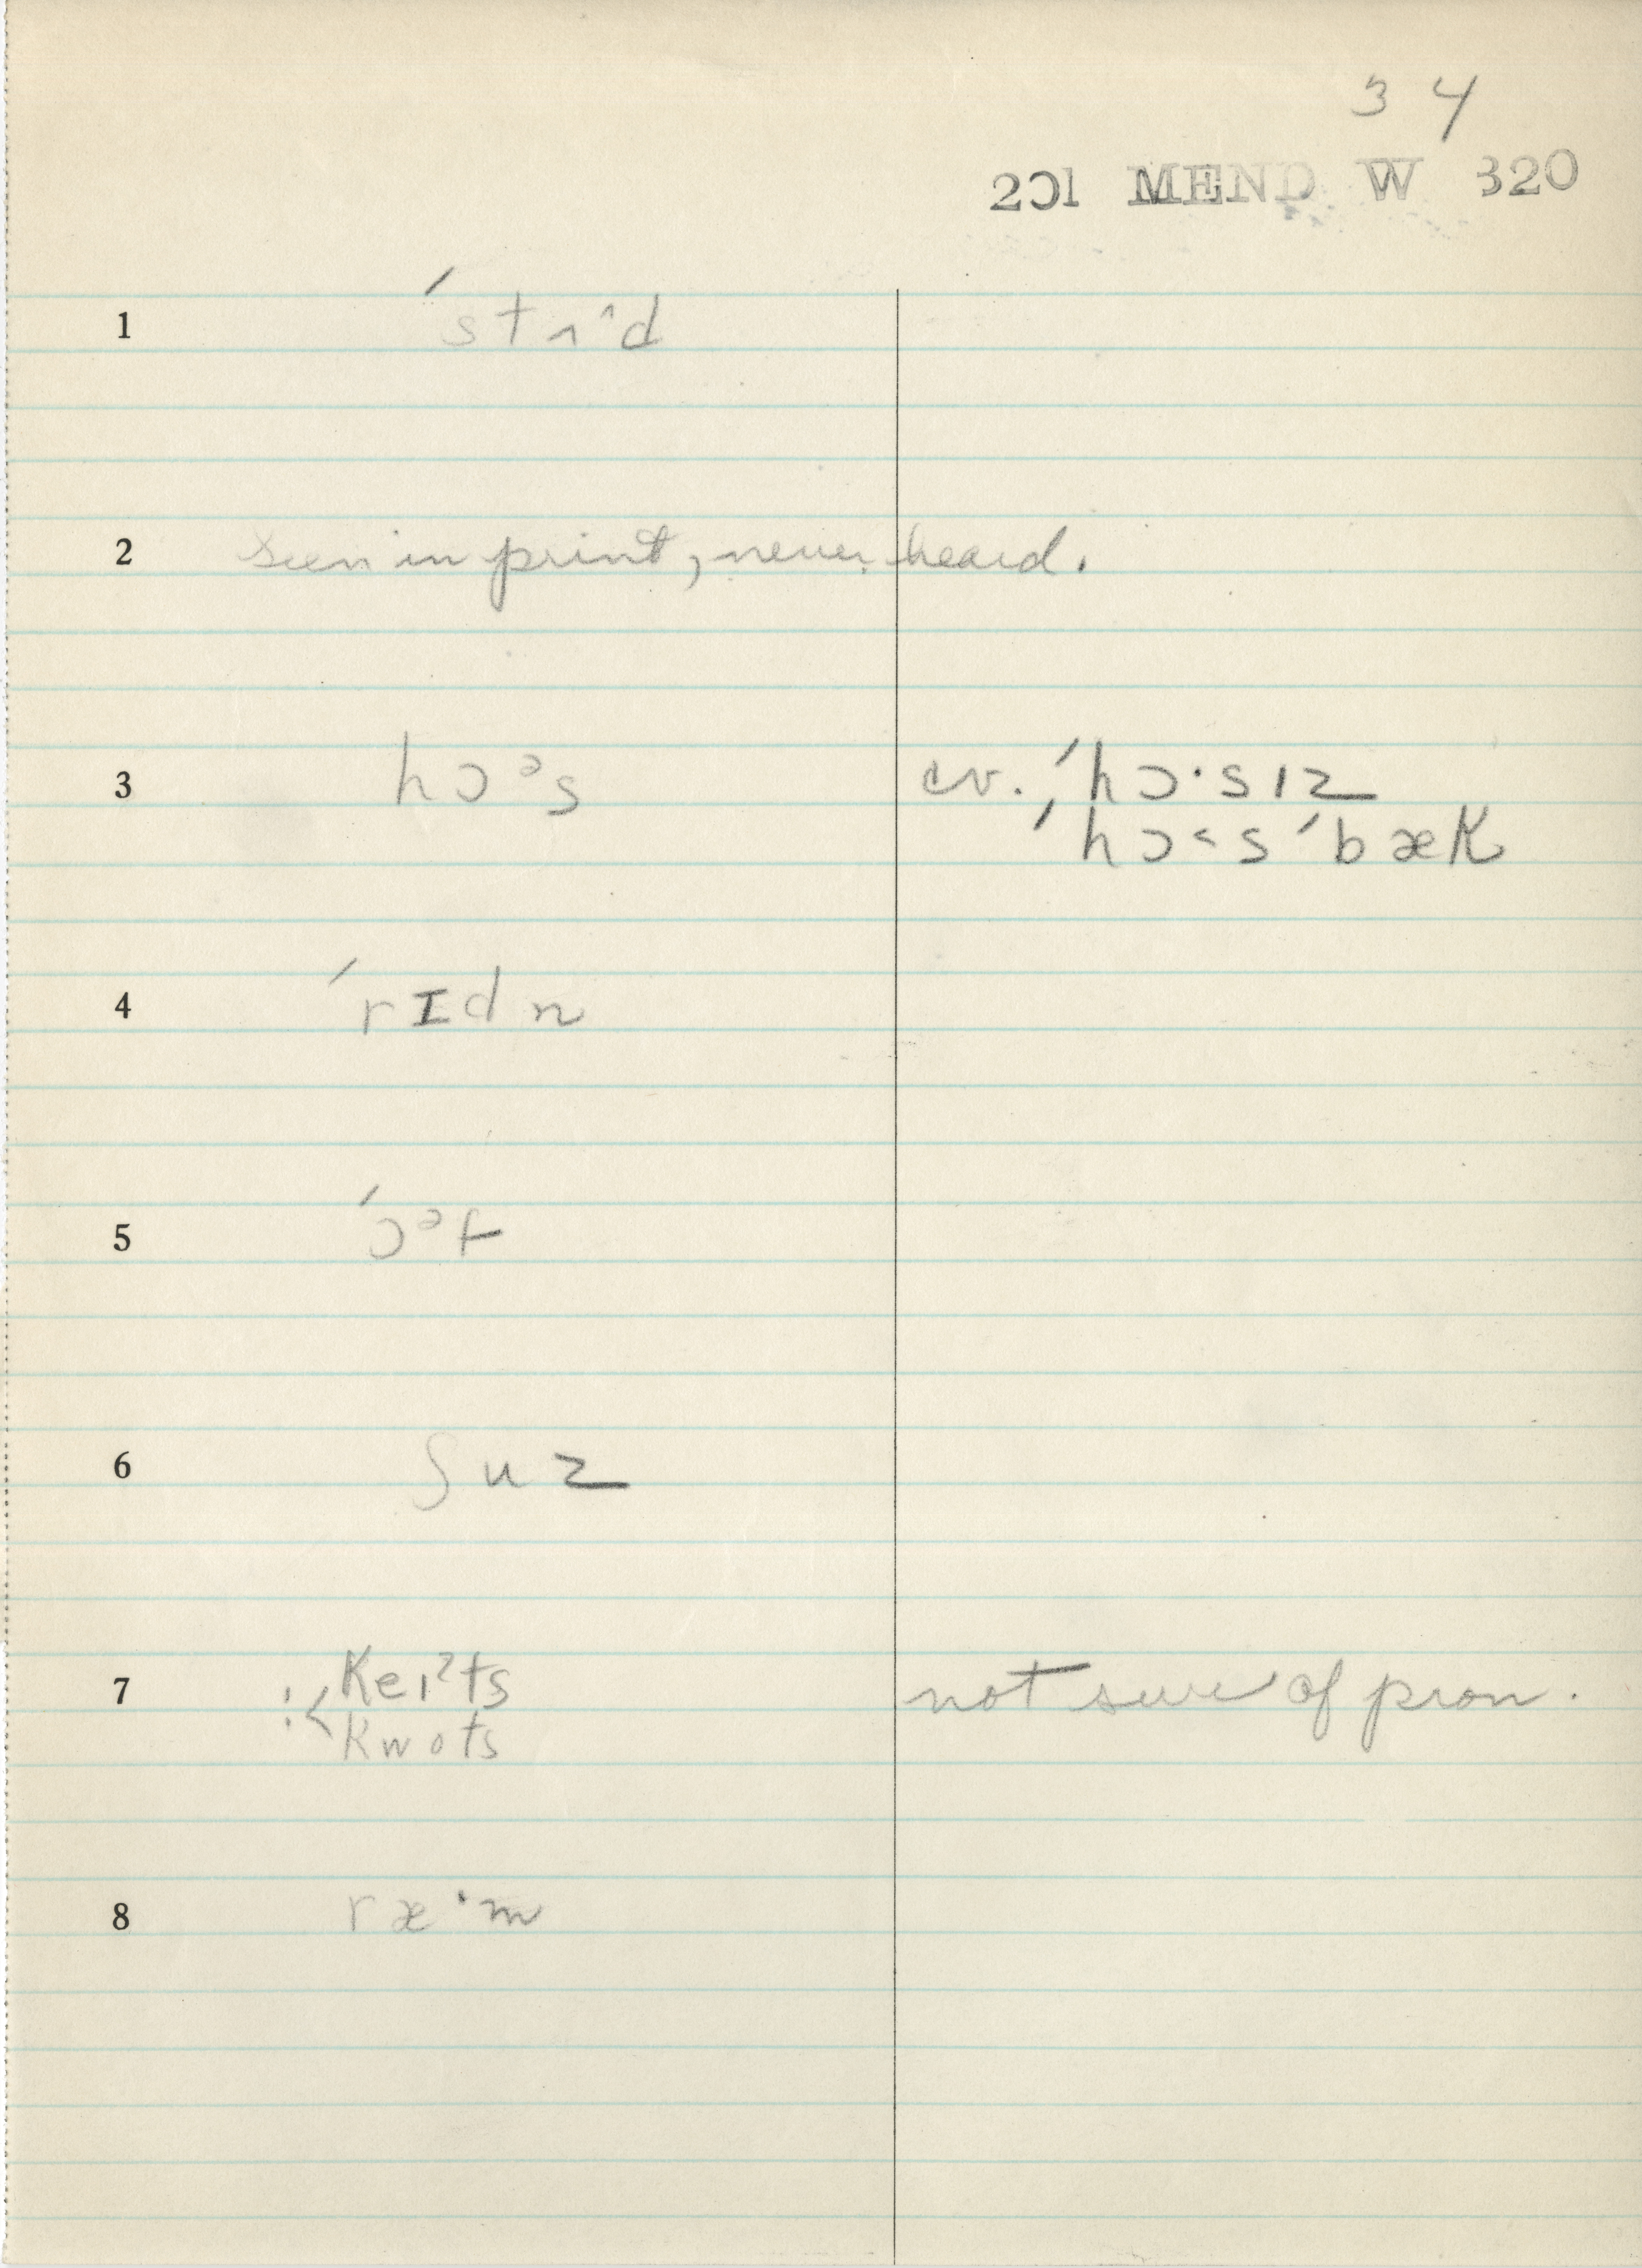 3 4
201 MEND W 320
1 ´stʌ^d
2 seen in print, never heard.
3 hɔᵊs cv. ´hɔ·sɪz
´hɔ˂s´bæk
4 ´rɪdn
5 ´ɔᵊf
6 ʃuz
7 :< keɪˀts not sure of pron.
kwots
8 ræ·m